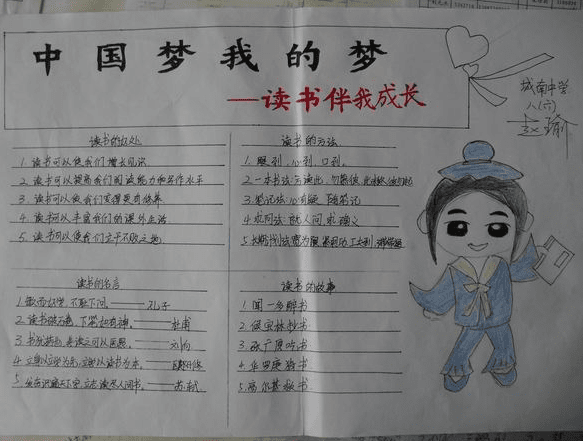 中国梦我的梦
——读书伴我成长
城南中学
八(六)
读书的好处
1. 读书可以使我们增长见识
2. 读书可以提高我们阅读能力和写作水平
3. 读书可以使我们变得更有修养
4. 读书可以丰富我们的课外生活
5. 读书可以使我们立于不败之地
读书的方法
1. 眼到,心到,口到。
2. 一本书法:
3. 笔记法:心有疑 随笔记
4. 求问法:就人问 求确义
5.
读书的名言
1. 敏而好学,不耻下问。——孔子
2. 读书破万卷,下笔如有神。——杜甫
3. 书犹药也,善读之可以医愚。——刘向
4. 立身以立学为先,立学以读书为本。——欧阳修
5. 发奋识遍天下字,立志读尽人间书。——苏轼
读书的故事
1. 闻一多醉书
2. 侯宝林抄书
3. 张广厚吃书
4. 华罗庚猜书
5. 高尔基救书